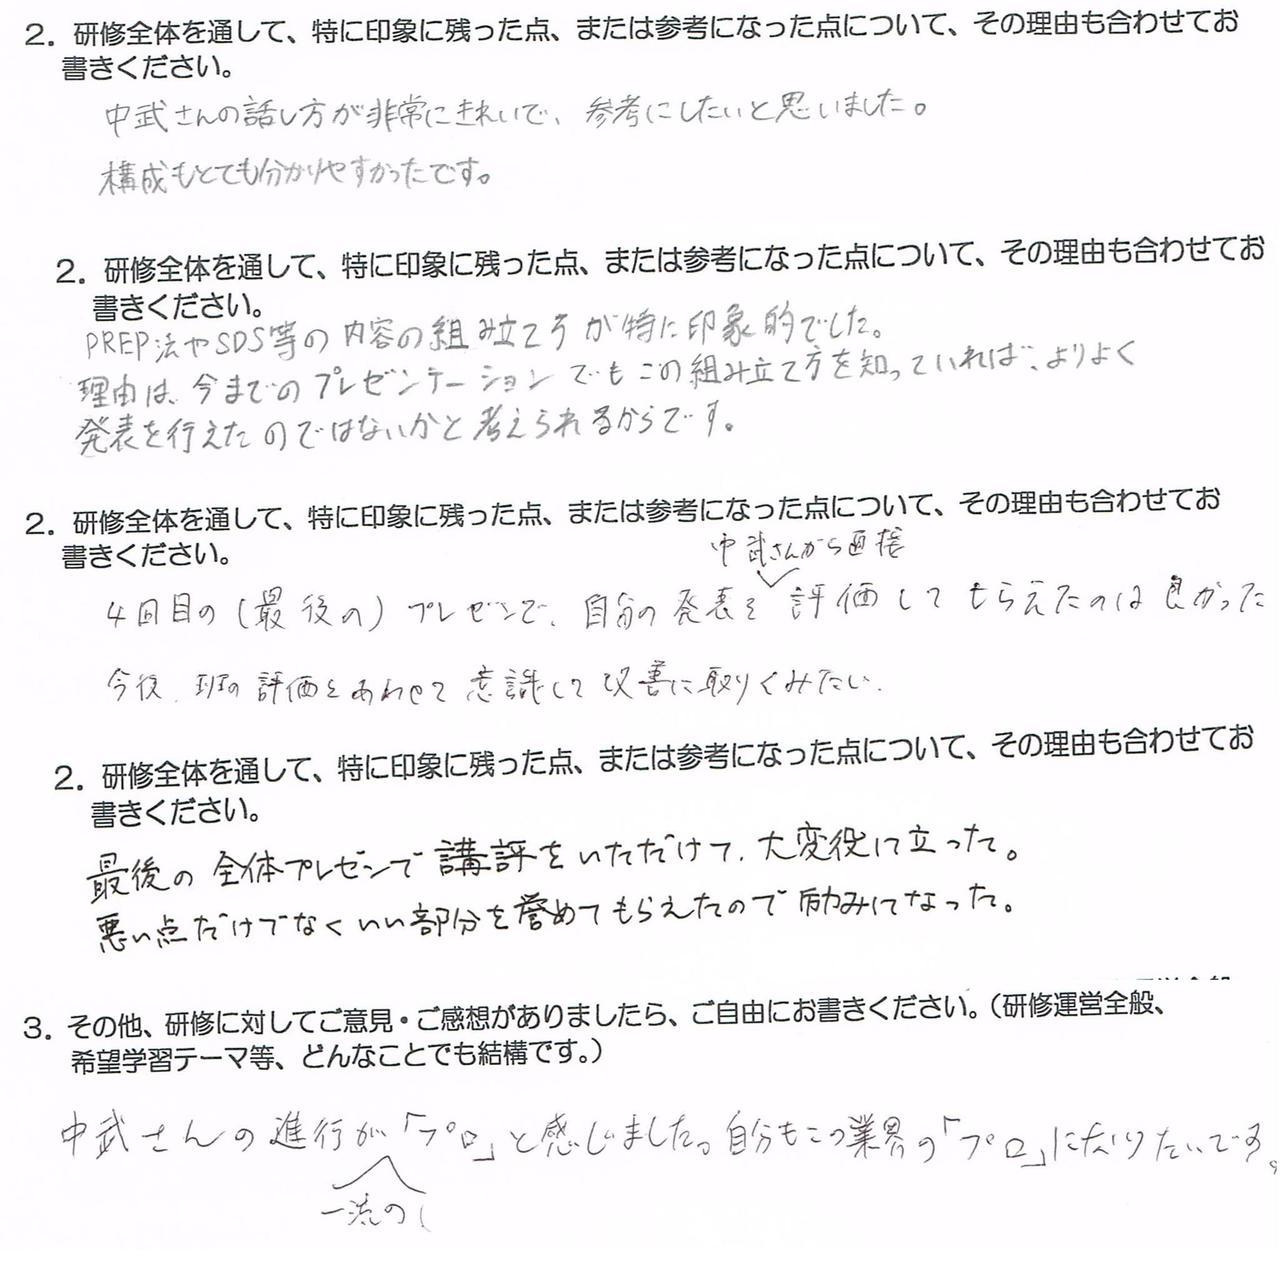 2. 研修全体を通して、特に印象に残った点、または参考になった点について、その理由も合わせてお
書きください。
中武さんの話し方が非常にきれいで、参考にしたいと思いました。
構成もとても分かりやすかったです。
2. 研修全体を通して、特に印象に残った点、または参考になった点について、その理由も合わせてお
書きください。
PREP法やSDS等の内容の組み立て方が特に印象的でした。
理由は、今までのプレゼンテーションでもこの組み立て方を知っていれば、よりよく
発表を行えたのではないかと考えられるからです。
2. 研修全体を通して、特に印象に残った点、または参考になった点について、その理由も合わせてお
書きください。
中武さんから直接
4回目の(最後の)プレゼンで、自分の発表を評価してもらえたのは良かった
今後、班の評価とあわせて意識して改善に取りくみたい.
2. 研修全体を通して、特に印象に残った点、または参考になった点について、その理由も合わせてお
書きください。
最後の全体プレゼンで講評をいただけて、大変役に立った。
悪い点だけでなくいい部分を誉めてもらえたので励みになった。
3. その他、研修に対してご意見・ご感想がありましたら、ご自由にお書きください。(研修運営全般、
希望学習テーマ等、どんなことでも結構です。)
中武さんの進行が「プロ」と感じました。自分もこの業界の「プロ」になりたいです。
一流の